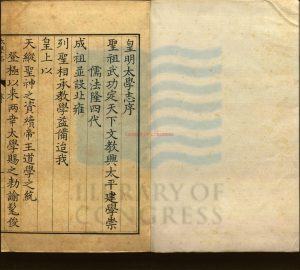 皇明太學志序
聖祖武功定天下文教興太平建學崇
儒法隆四代
成祖並設北雍
列聖相承教學益備迨我
皇上以
天縱聖神之資纘帝王道學之統
登極以來兩幸太學賜之勅諭髦俊
LIBRARY OF
CONGRESS